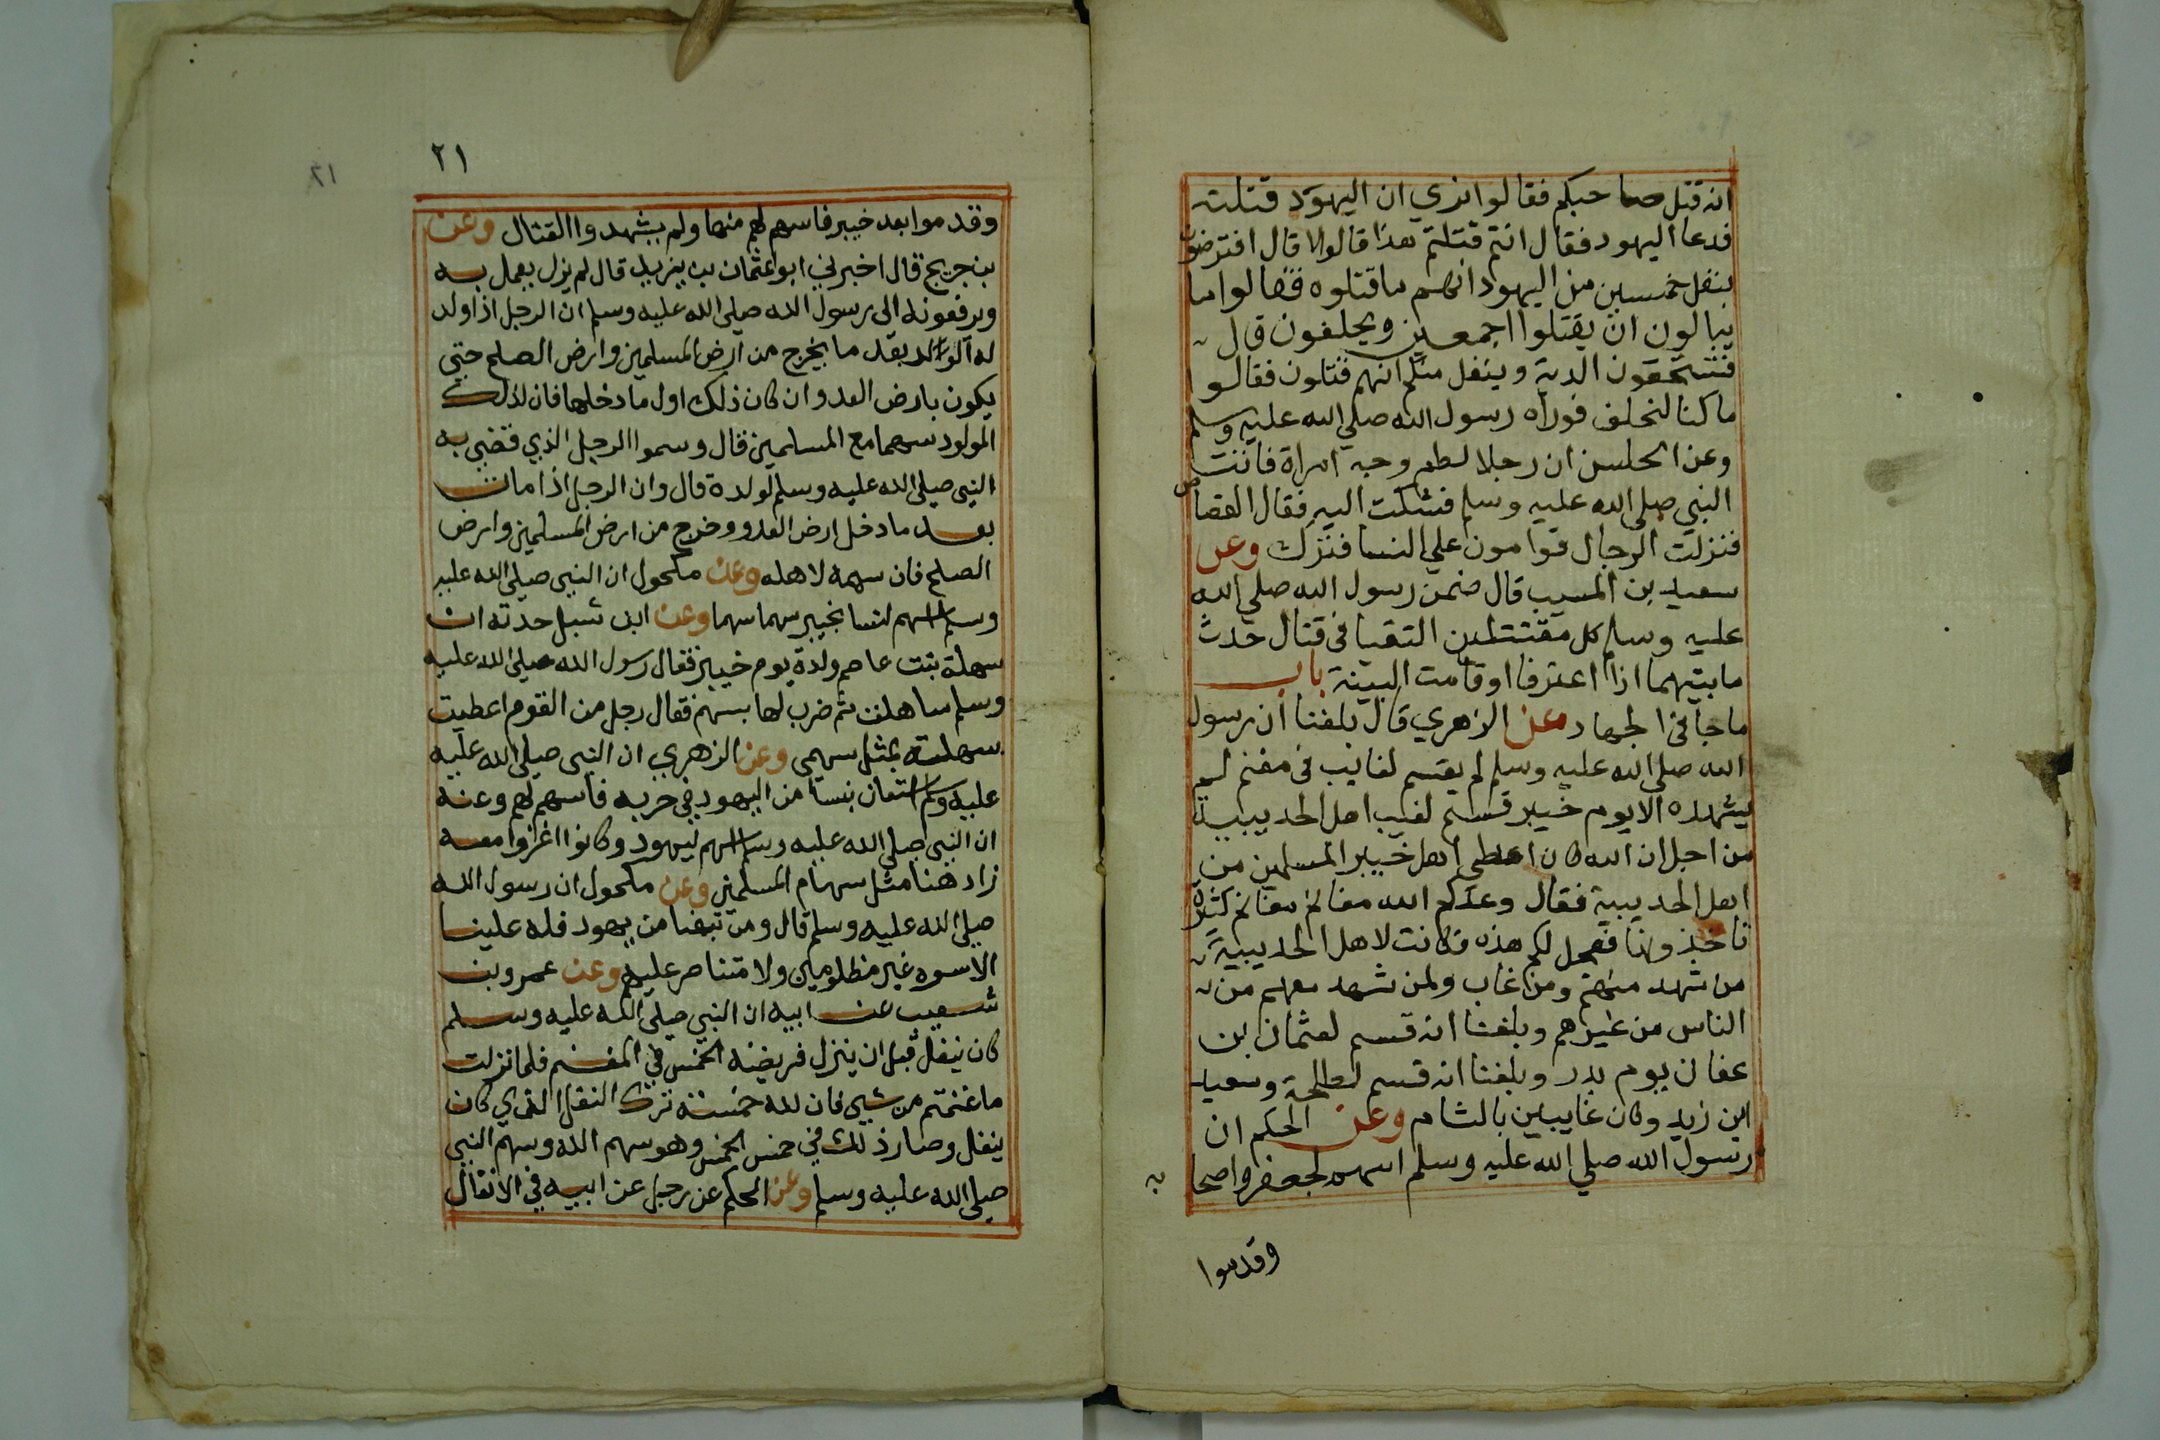 انه قتل صاحبكم فقالوا نري ان اليهود قتلته
فدعا اليهود فقال انتم قتلتم هذا قالوا لا قال افترضون
بنفل خمسين من اليهود انهم ما قتلوه فقالوا ما
يبالون ان يقتلوا اجمعين ويحلفون قال
فتستحقون الدية وينفل منكم انهم قتلون فقالوا
ما كنا لنحلف فوداه رسول الله صلي الله عليه وسلم
وعن الحسن ان رجلا لطم وجه امراة فاتت
النبي صلي الله عليه وسلم فشكت اليه فقال القصاص
فنزلت الرجال قوامون علي النسا فترك وعن
سعيد بن المسيب قال ضمن رسول الله صلي الله
عليه وسلم كل مقتتلين التقيا في قتال حدث
ما بينهما اذا اعترفا او قامت البينة باب
ما جا في الجهاد وعن الزهري قال بلغنا ان رسول
الله صلي الله عليه وسلم لم يقسم لغايب في مغنم لم
يشهده الا يوم خيبر قسم لغيب اهل الحديبية
من اجل ان الله كان اعطي اهل خيبر المسلمين من
اهل الحديبية فقال وعدكم الله مغانم مغانم كثيرة
تاخذونها فعجل لكم هذه فكانت لاهل الحديبية
من شهد منهم ومن غاب ولمن شهد معهم من
الناس من غيرهم وبلغنا انه قسم لعثمان بن
عفان يوم بدر وبلغنا انه قسم لطلحة وسعيد
ابن زيد وكان غايبين بالشام وعن الحكم ان
رسول الله صلي الله عليه وسلم اسهم لجعفر واصحا
به
وقدموا
٢١
٢١
وقدموا بعد خيبر فاسهم لهم منها ولم يشهدوا القتال وعن
بن جريج قال اخبرني ابو عثمان بن يزيد قال لم يزل يعمل به
ويرفعونه الى رسول الله صلى الله عليه وسلم ان الرجل اذا ولد
له الولد بعد ما يخرج من ارض المسلمين وارض الصلح حتي
يكون بارض العدو ان كان ذلك اول ما دخلها فان لذلك
المولود سهما مع المسلمين قال وسموا الرجل الذي قضي به
النبي صلى الله عليه وسلم لولدة قال وان الرجل اذا مات
بعد ما دخل ارض العدو وخرج من ارض المسلمين وارض
الصلح فان سهمه لاهله وعن مكحول ان النبي صلى الله عليه
وسلم اسهم لنسا بخيبر سهما سهما وعن ابن شبل حدثه ان
سهلة بنت عاصم ولدة يوم خيبر فقال رسول الله صلى الله عليه
وسلم ساهلت ثم ضرب لها بسهم فقال رجل من القوم اعطيت
سهلته بمثل سهمي وعن الزهري ان النبي صلى الله عليه
عليه وسلم استعان بنسا من اليهود في حربه فاسهم لهم وعنه
ان النبي صلى الله عليه وسلم اسهم ليهود وكانوا اغزوا معه
زاد هنا مثل سهام المسلمين وعن مكحول ان رسول الله
صلى الله عليه وسلم قال ومن تبعنا من يهود فله علينا
الاسوه غير مظلومين ولا متناصر عليهم وعن عمرو بن
شعيب عن ابيه ان النبي صلى الله عليه وسلم
كان ينفل قبل ان ينزل فريضة الخمس في المغنم فلما نزلت
ما غنمتم من شيي فان لله خمسه ترك النفل الذي كان
ينفل وصار ذلك في خمس الخمس وهو سهم الله وسهم النبي
صلى الله عليه وسلم وعن الحكم عن رجل عن ابيه في الانفال